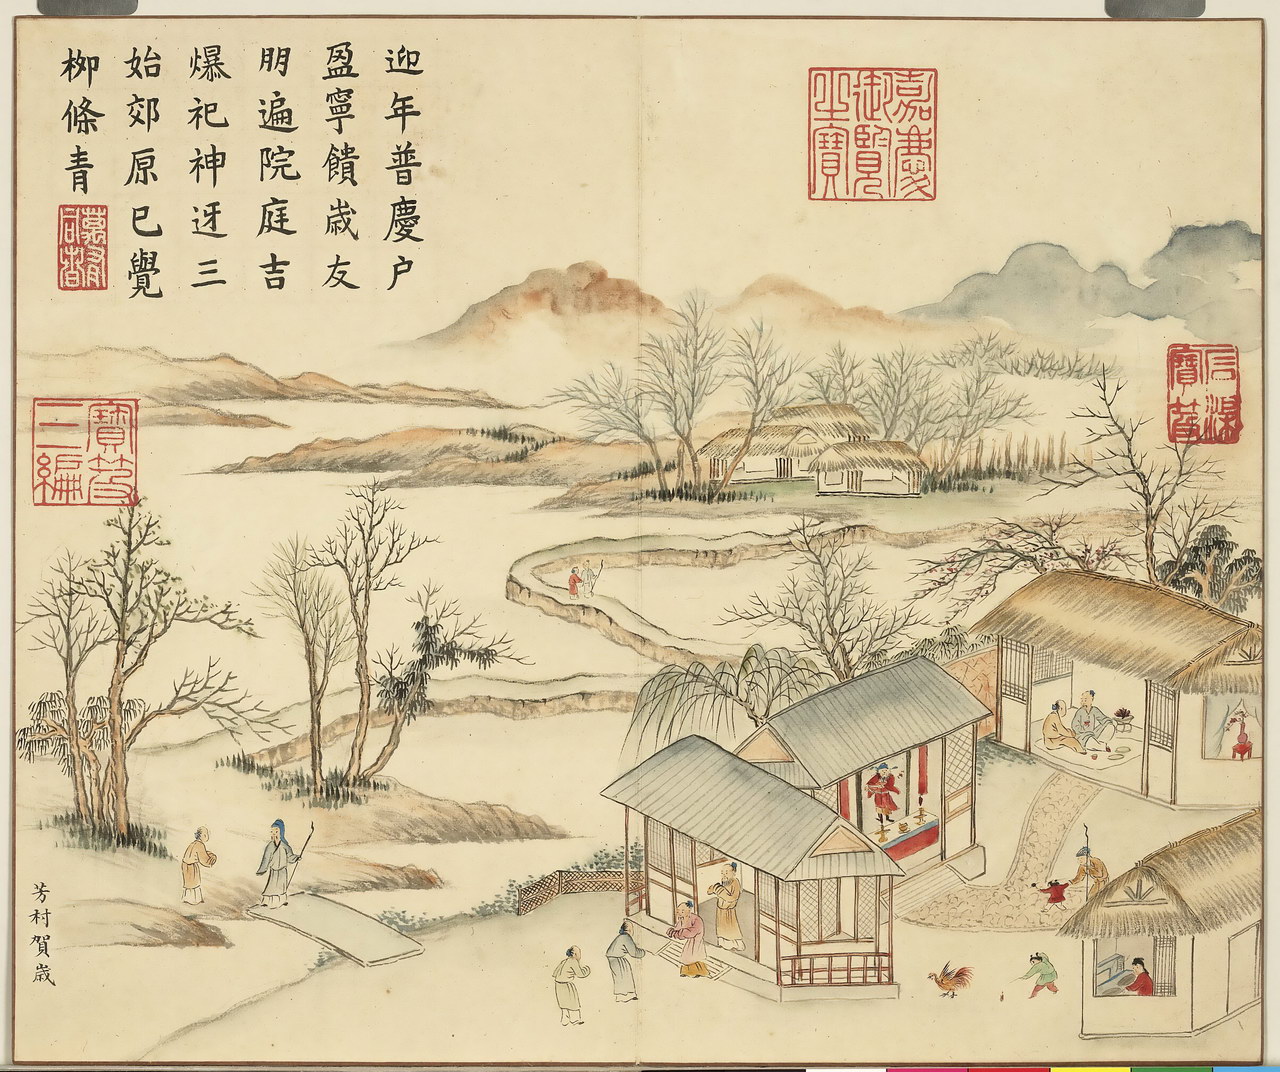 迎年普慶户
盈寧饋歲友
朋遍院庭吉
爆祀神迓三
始郊原已覺
柳條青
芳村賀歲
嘉慶
御覽
之寶
寶笈
三編